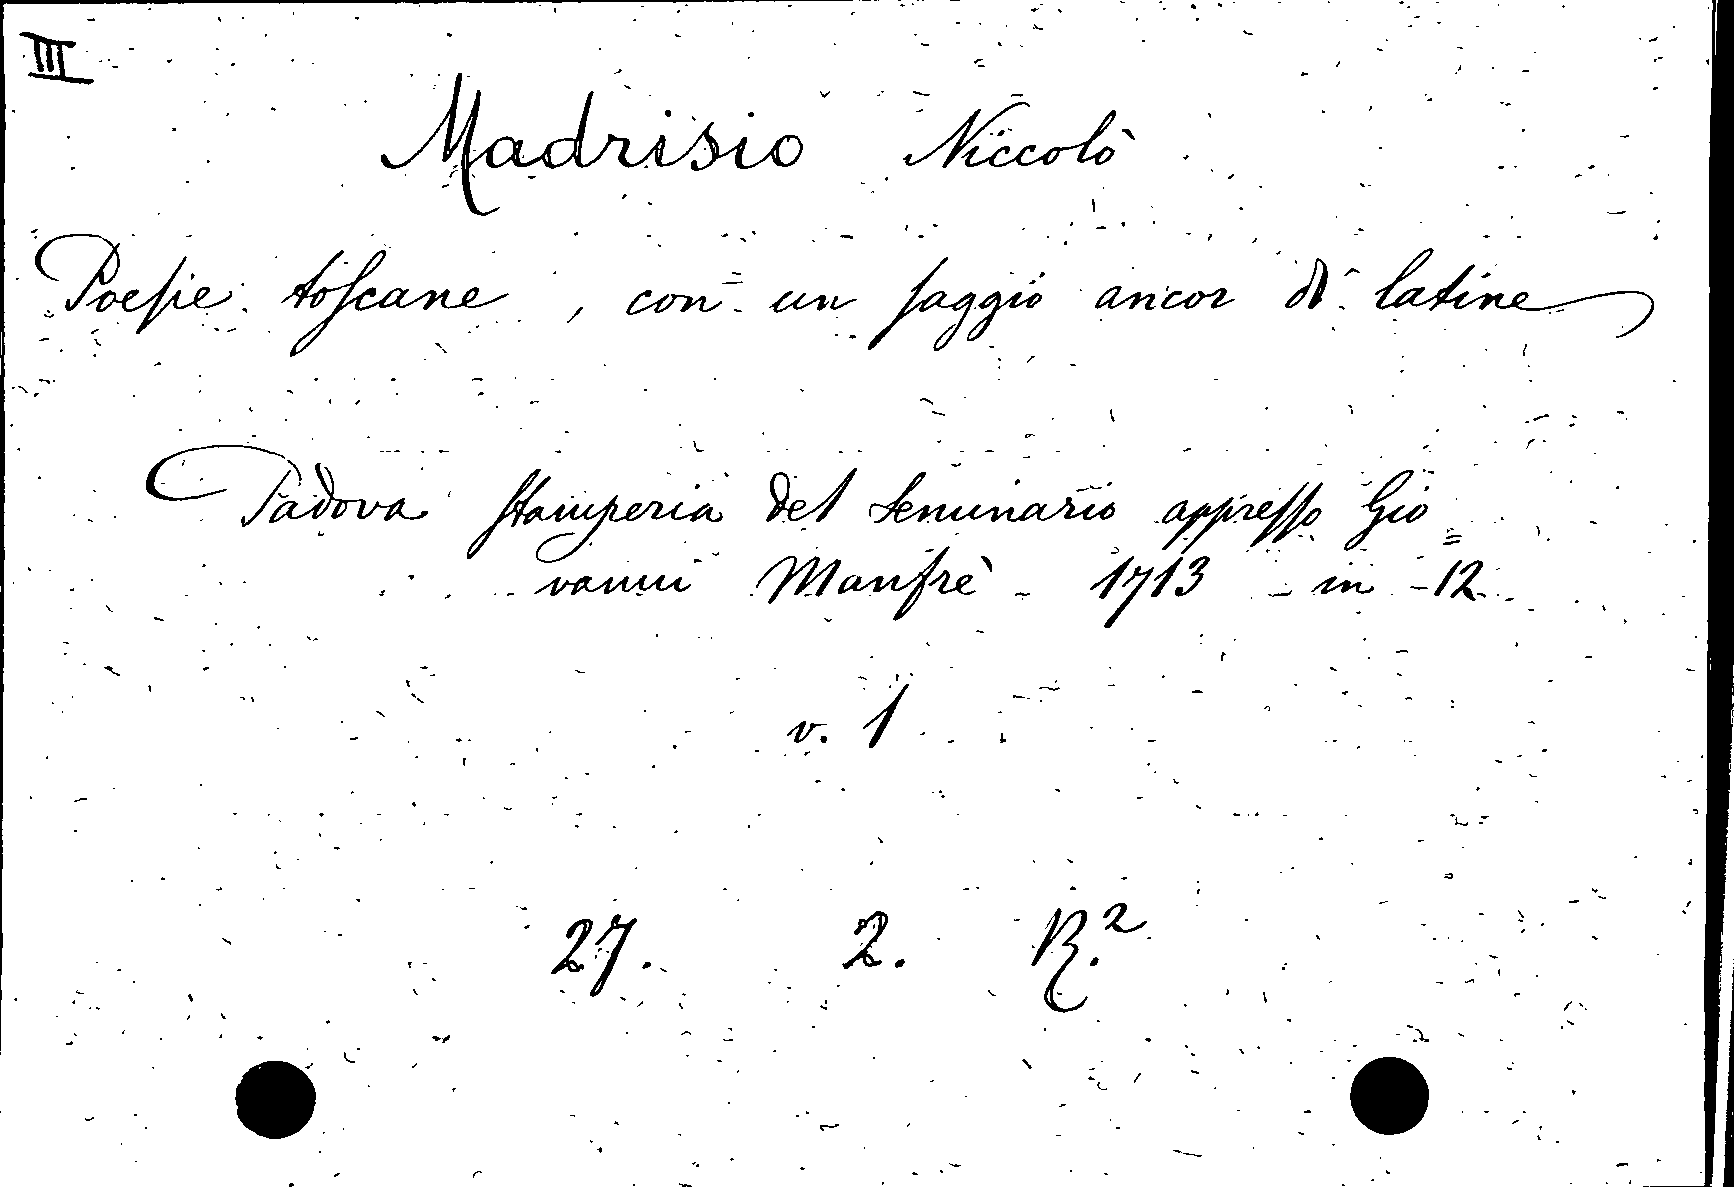 III
Madrisio Niccolò
Poesie toscane, con un saggio ancor di latine
Padova stamperia del seminario appresso Gio=
vanni Manfrè 1713 in-12
v. 1
27. 2. R.²